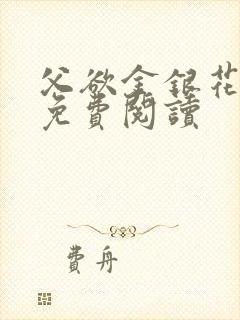 父欲金銀花
免費閱讀
費舟